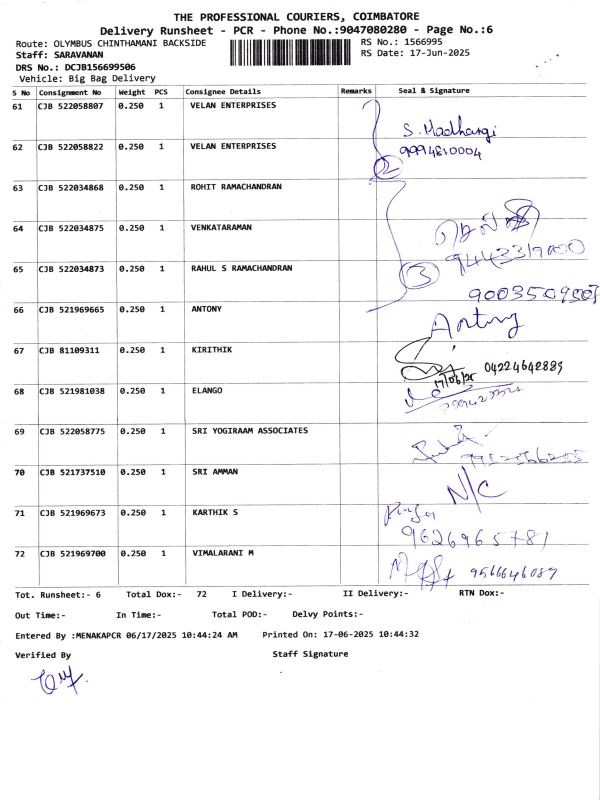 THE PROFESSIONAL COURIERS, COIMBATORE
Delivery Runsheet - PCR - Phone No.:9047080280 - Page No.:6
Route: OLYMBUS CHINTHAMANI BACKSIDE RS No.: 1566995
Staff: SARAVANAN RS Date: 17-Jun-2025
DRS No.: DCJB156699506
Vehicle: Big Bag Delivery
S No Consignment No Weight PCS Consignee Details Remarks Seal & Signature
61 CJB 522058807 0.250 1 VELAN ENTERPRISES
S. Madhangi
62 CJB 522058822 0.250 1 VELAN ENTERPRISES 9994810004
2
63 CJB 522034868 0.250 1 ROHIT RAMACHANDRAN
64 CJB 522034875 0.250 1 VENKATARAMAN
65 CJB 522034873 0.250 1 RAHUL S RAMACHANDRAN
3
66 CJB 521969665 0.250 1 ANTONY Antony
67 CJB 81109311 0.250 1 KIRITHIK
04224642889
17/06/25
68 CJB 521981038 0.250 1 ELANGO
69 CJB 522058775 0.250 1 SRI YOGIRAAM ASSOCIATES
70 CJB 521737510 0.250 1 SRI AMMAN N/C
71 CJB 521969673 0.250 1 KARTHIK S
9626965781
72 CJB 521969700 0.250 1 VIMALARANI M 9566646089
Tot. Runsheet:- 6 Total Dox:- 72 I Delivery:- II Delivery:- RTN Dox:-
Out Time:- In Time:- Total POD:- Delvy Points:-
Entered By :MENAKAPCR 06/17/2025 10:44:24 AM Printed On: 17-06-2025 10:44:32
Verified By Staff Signature